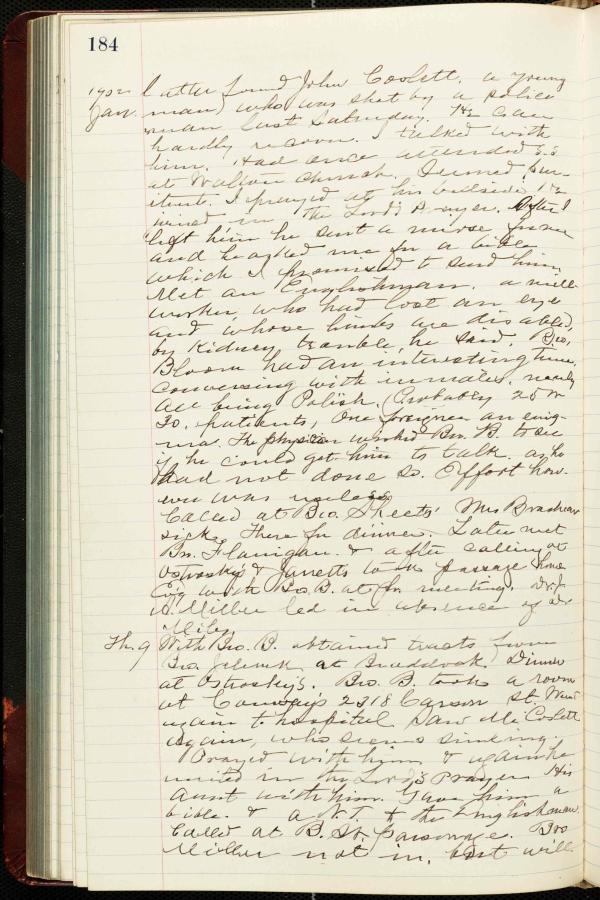 184
1902 Latter found John Coslett. a young
Jan. man, who was shot by a police
man last Saturday. He can
hardly recover. I talked with
him. Had once attended S.S
at Walton church. Seemed pen-
itent. I prayed at his bedside. He
joined in the Lord's Prayer. After I
left him he sent a nurse
and he asked me for a bible
which I promised to send him.
Met an Englishman. a mill
worker, who had lost an eye
and whose limbs are disabled,
by Kidney trouble, he said. Bro.
Bloom had an interesting time.
conversing with inmates. nearly
all being Polish. (Probably 25 or
30. patients, One foreigner an enig-
ma. The physician wished Bro. B. to see
if he could get him to talk. as he
had not done so. Effort how-
ever was useless
Called at Bro. Sheets' Mrs Bradwar
sick. There for dinner. Later met
Bro. Flanigan. & after calling at
Ostrosky's & Jarretts took passage home
with Bro B. at for meeting.
A. Miller led in absence of Dr
Miles.
Th. 9 With Bro. B. obtained tracts from
Bro. Jelinek at Braddock. Dinner
at Ostrosky's. Bro. B. took a room
at Conway's 2318 Carson St. Went
again to hospital Saw Mr Coslett
again, who seems sinking.
Prayed with him & again he
united in the Lord's Prayer His
aunt with him. Gave him a
bible. & a N.T. to the Englishman.
Called at B. St. parsonage. Bro
Miller not in, but will